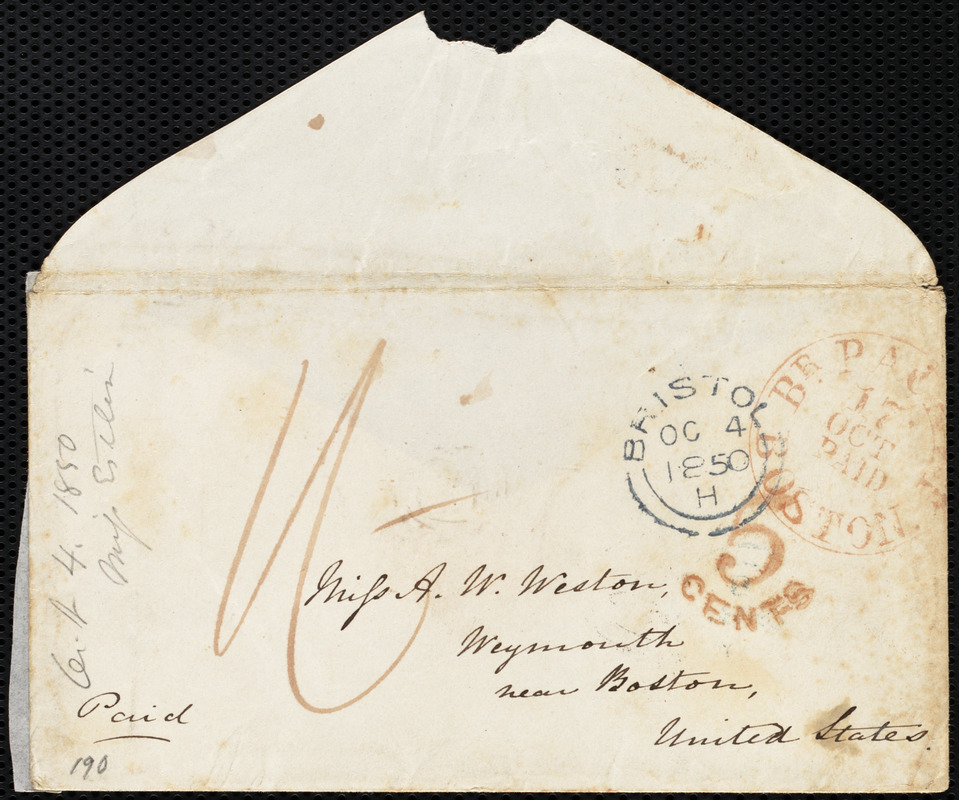 BRISTOL
OC 4
1850
H
BR. PACKET
17
OCT
PAID
BOSTON
5
CENTS
Miss A. W. Weston,
Weymouth
near Boston,
United States.
Paid
190
Oct 4. 1850
Miss Estlin